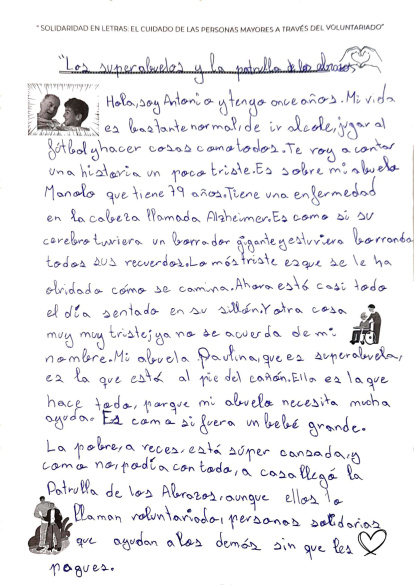 "SOLIDARIDAD EN LETRAS: EL CUIDADO DE LAS PERSONAS MAYORES A TRAVÉS DEL VOLUNTARIADO"
"Los superabuelos y la patrulla de los abrazos
Hola, soy Antonio y tengo once años. Mi vida
es bastante normal, de ir al cole, jugar al
fútbol y hacer cosas como todos. Te voy a contar
una historia un poco triste. Es sobre mi abuelo
Manolo que tiene 79 años. Tiene una enfermedad
en la cabeza llamada Alzheimer. Es como si su
cerebro tuviera un borrador gigante y estuviera borrando
todos sus recuerdos. Lo más triste es que se le ha
olvidado cómo se camina. Ahora está casi todo
el día sentado en su sillón. Y otra cosa
muy muy triste; ya no se acuerda de mi
nombre. Mi abuela Paulina, que es superabuela,
es la que está al pie del cañón. Ella es la que
hace todo, porque mi abuelo necesita mucha
ayuda. Es como si fuera un bebé grande.
La pobre, a veces, está súper cansada, y
como no, podía con todo, a casa llegó la
Patrulla de los Abrazos, aunque ellos lo
llaman voluntariado, personas solidarias
que ayudan a los demás sin que les
pagues.